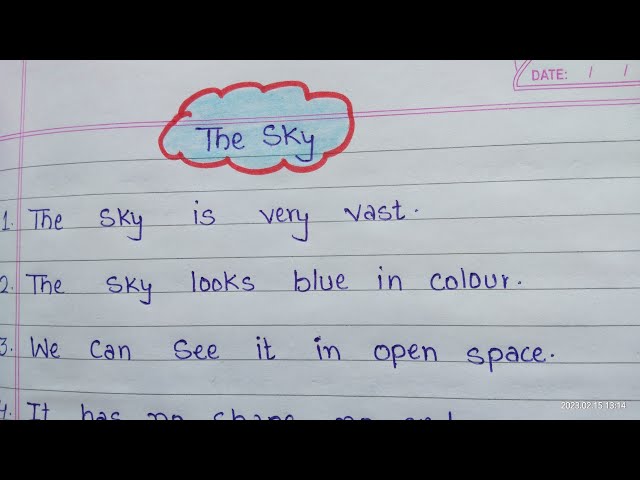 DATE: / /
The Sky
1. The sky is very vast.
2. The sky looks blue in colour.
3. We can see it in open space.
4. It has no shape, no end
2023.02.15 13:14